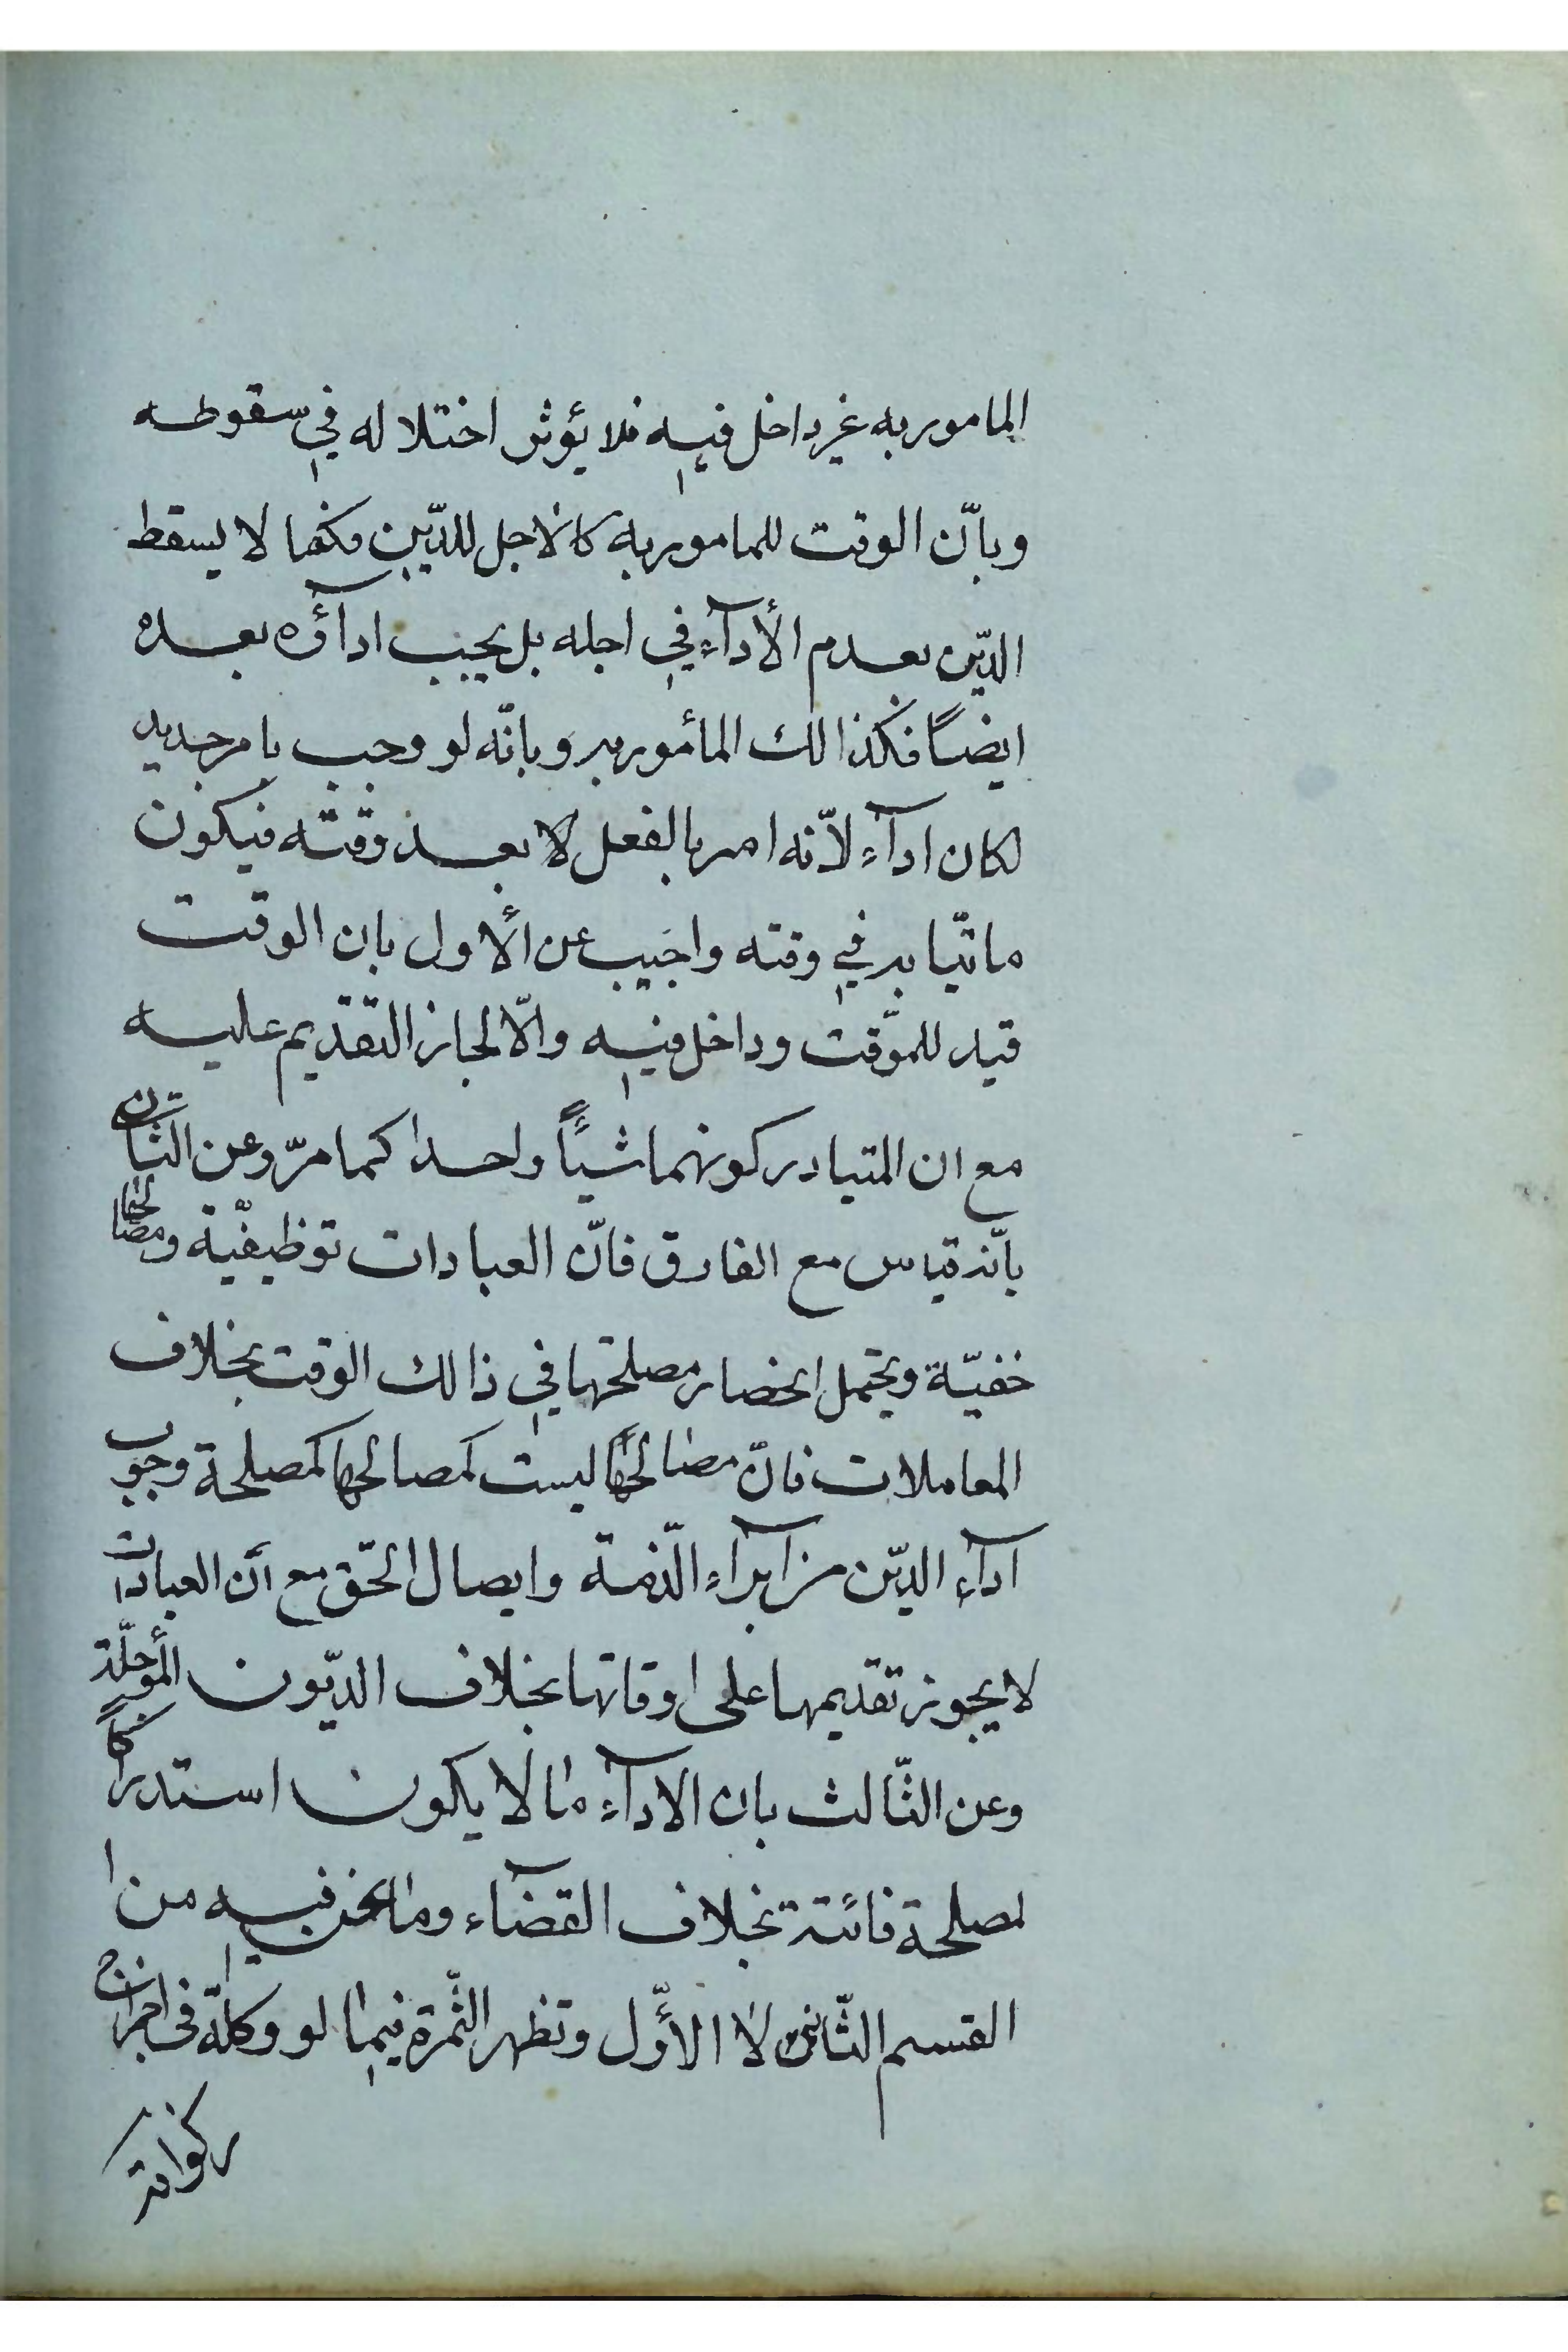 المامور به غير داخل فيه فلا يؤثر اختلاله في سقوطه
وبانّ الوقت للمامور به كالاجل للدّين فكما لا يسقط
الدّين بعدم الأدآء في اجله بل يجب ادآؤه بعده
ايضاً فكذالك المأمور به وبانّه لو وجب بامر جديد
لكان ادآء لأنّه امر بالفعل لا بعد وقته فيكون
ماتيّا به في وقته واجيب عن الأول بان الوقت
قيد للموّقت وداخل فيه والّا لجاز التقديم عليه
مع ان المتبادر كونهما شيئاً واحدا كما مرّ وعن الثّاني
بانّه قياس مع الفارق فانّ العبادات توظيفيّة ومصالحها
خفيّة ويحتمل انحصار مصلحتها في ذالك الوقت بخلاف
المعاملات فانّ مصالحها ليست كمصالحها كمصلحة وجوب
ادآء الدّين من ابرآء الذّمة وايصال الحّق مع انّ العبادات
لا يجوز تقديمها على اوقاتها بخلاف الديّون المؤجلّة
وعن الثّالث بان الادآء ما لا يكون استدراكاً
لمصلحة فائتة بخلاف القضآء وما نحن فيه من ا
القسم الثّاني لا الأوّل وتظهر الثّمرة فيما لو وكلّه في اخراج
زكوته